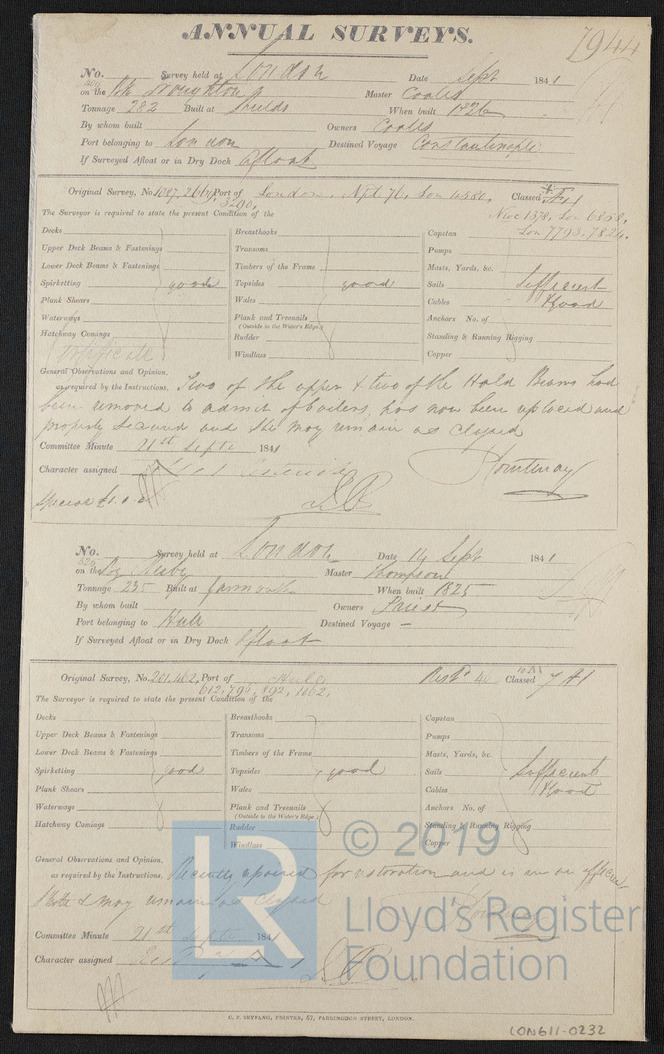 ANNUAL SURVEYS.
7944
No. Survey held at London Date Sept 1841
on the Master Coales
Tonnage 282 Built at Shields When built 1826
By whom built Owners Coales
Port belonging to London Destined Voyage Constantinople
If Surveyed Afloat or in Dry Dock Afloat
Original Survey, No. Port of London, Classed
The Surveyor is required to state the present Condition of the
Decks Breasthooks Capstan
Upper Deck Beams & Fastenings Transoms Pumps
Lower Deck Beams & Fastenings Timbers of the Frame Masts, Yards, &c.
Spirketting good Topsides good Sails Sufficient
Plank Shears Wales Cables Good
Waterways Plank and Treenails Anchors No. of
(Outside to the Water's Edge.)
Hatchway Comings Rudder Standing & Running Rigging
Windlass Copper
General Observations and Opinion,
as required by the Instructions. Two of the upper & two of the Hold Beams had
been removed to admit of boilers, has now been replaced and
properly secured and she may remain as Classed
Committee Minute 21st Septr 1841
Character assigned
Courtenay
No. Survey held at London Date 14 Sept 1841
on the Master Thompson
Tonnage 235 Built at Yarmouth When built 1825
By whom built Owners
Port belonging to Hull Destined Voyage –
If Surveyed Afloat or in Dry Dock Afloat
Original Survey, No. Port of Hull Classed
612, 790, 892, 1062.
The Surveyor is required to state the present Condition of the
Decks Breasthooks Capstan
Upper Deck Beams & Fastenings Transoms Pumps
Lower Deck Beams & Fastenings Timbers of the Frame Masts, Yards, &c.
Spirketting good Topsides good Sails Sufficient
Plank Shears Wales Cables Good
Waterways Plank and Treenails Anchors No. of
(Outside to the Water's Edge.)
Hatchway Comings Rudder Standing & Running Rigging
Windlass Copper
General Observations and Opinion,
as required by the Instructions. Recently repaired for restoration and is in an efficient
State & may remain as Classed
Committee Minute 21st Septr 1841
Character assigned
C. F. SEYFANG, PRINTER, 57, FARRINGDON STREET, LONDON.
LON611-0232
LR © 2019
Lloyd's Register
Foundation